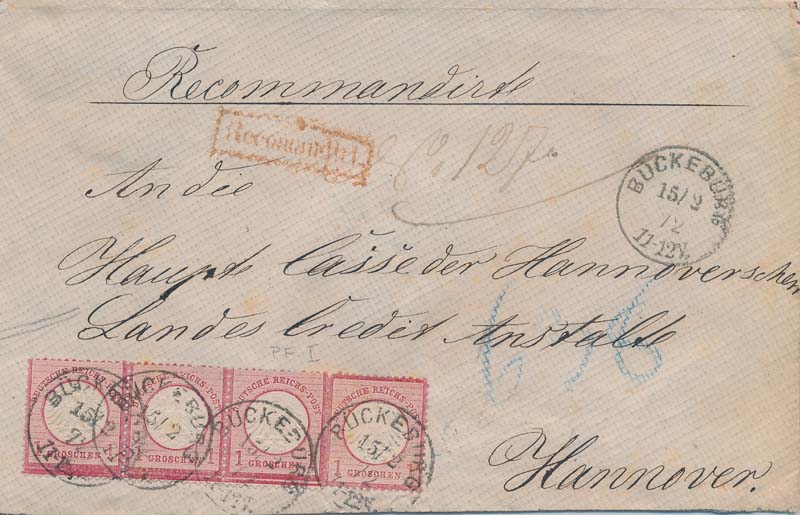 Recommandirte
Recommandirt.
No. 127.
BÜCKEBURG
15/2
72
11-12V.
An die
Haupt Casse der Hannoverschen
Landes Credit Anstalt
PF. I
DEUTSCHE REICHS-POST
1 GROSCHEN
DEUTSCHE REICHS-POST
1 GROSCHEN
DEUTSCHE REICHS-POST
1 GROSCHEN
DEUTSCHE REICHS-POST
1 GROSCHEN
BÜCKEBURG
15/2
BÜCKEBURG
15/2
BÜCKEBURG
BÜCKEBURG
15/2
Hannover.